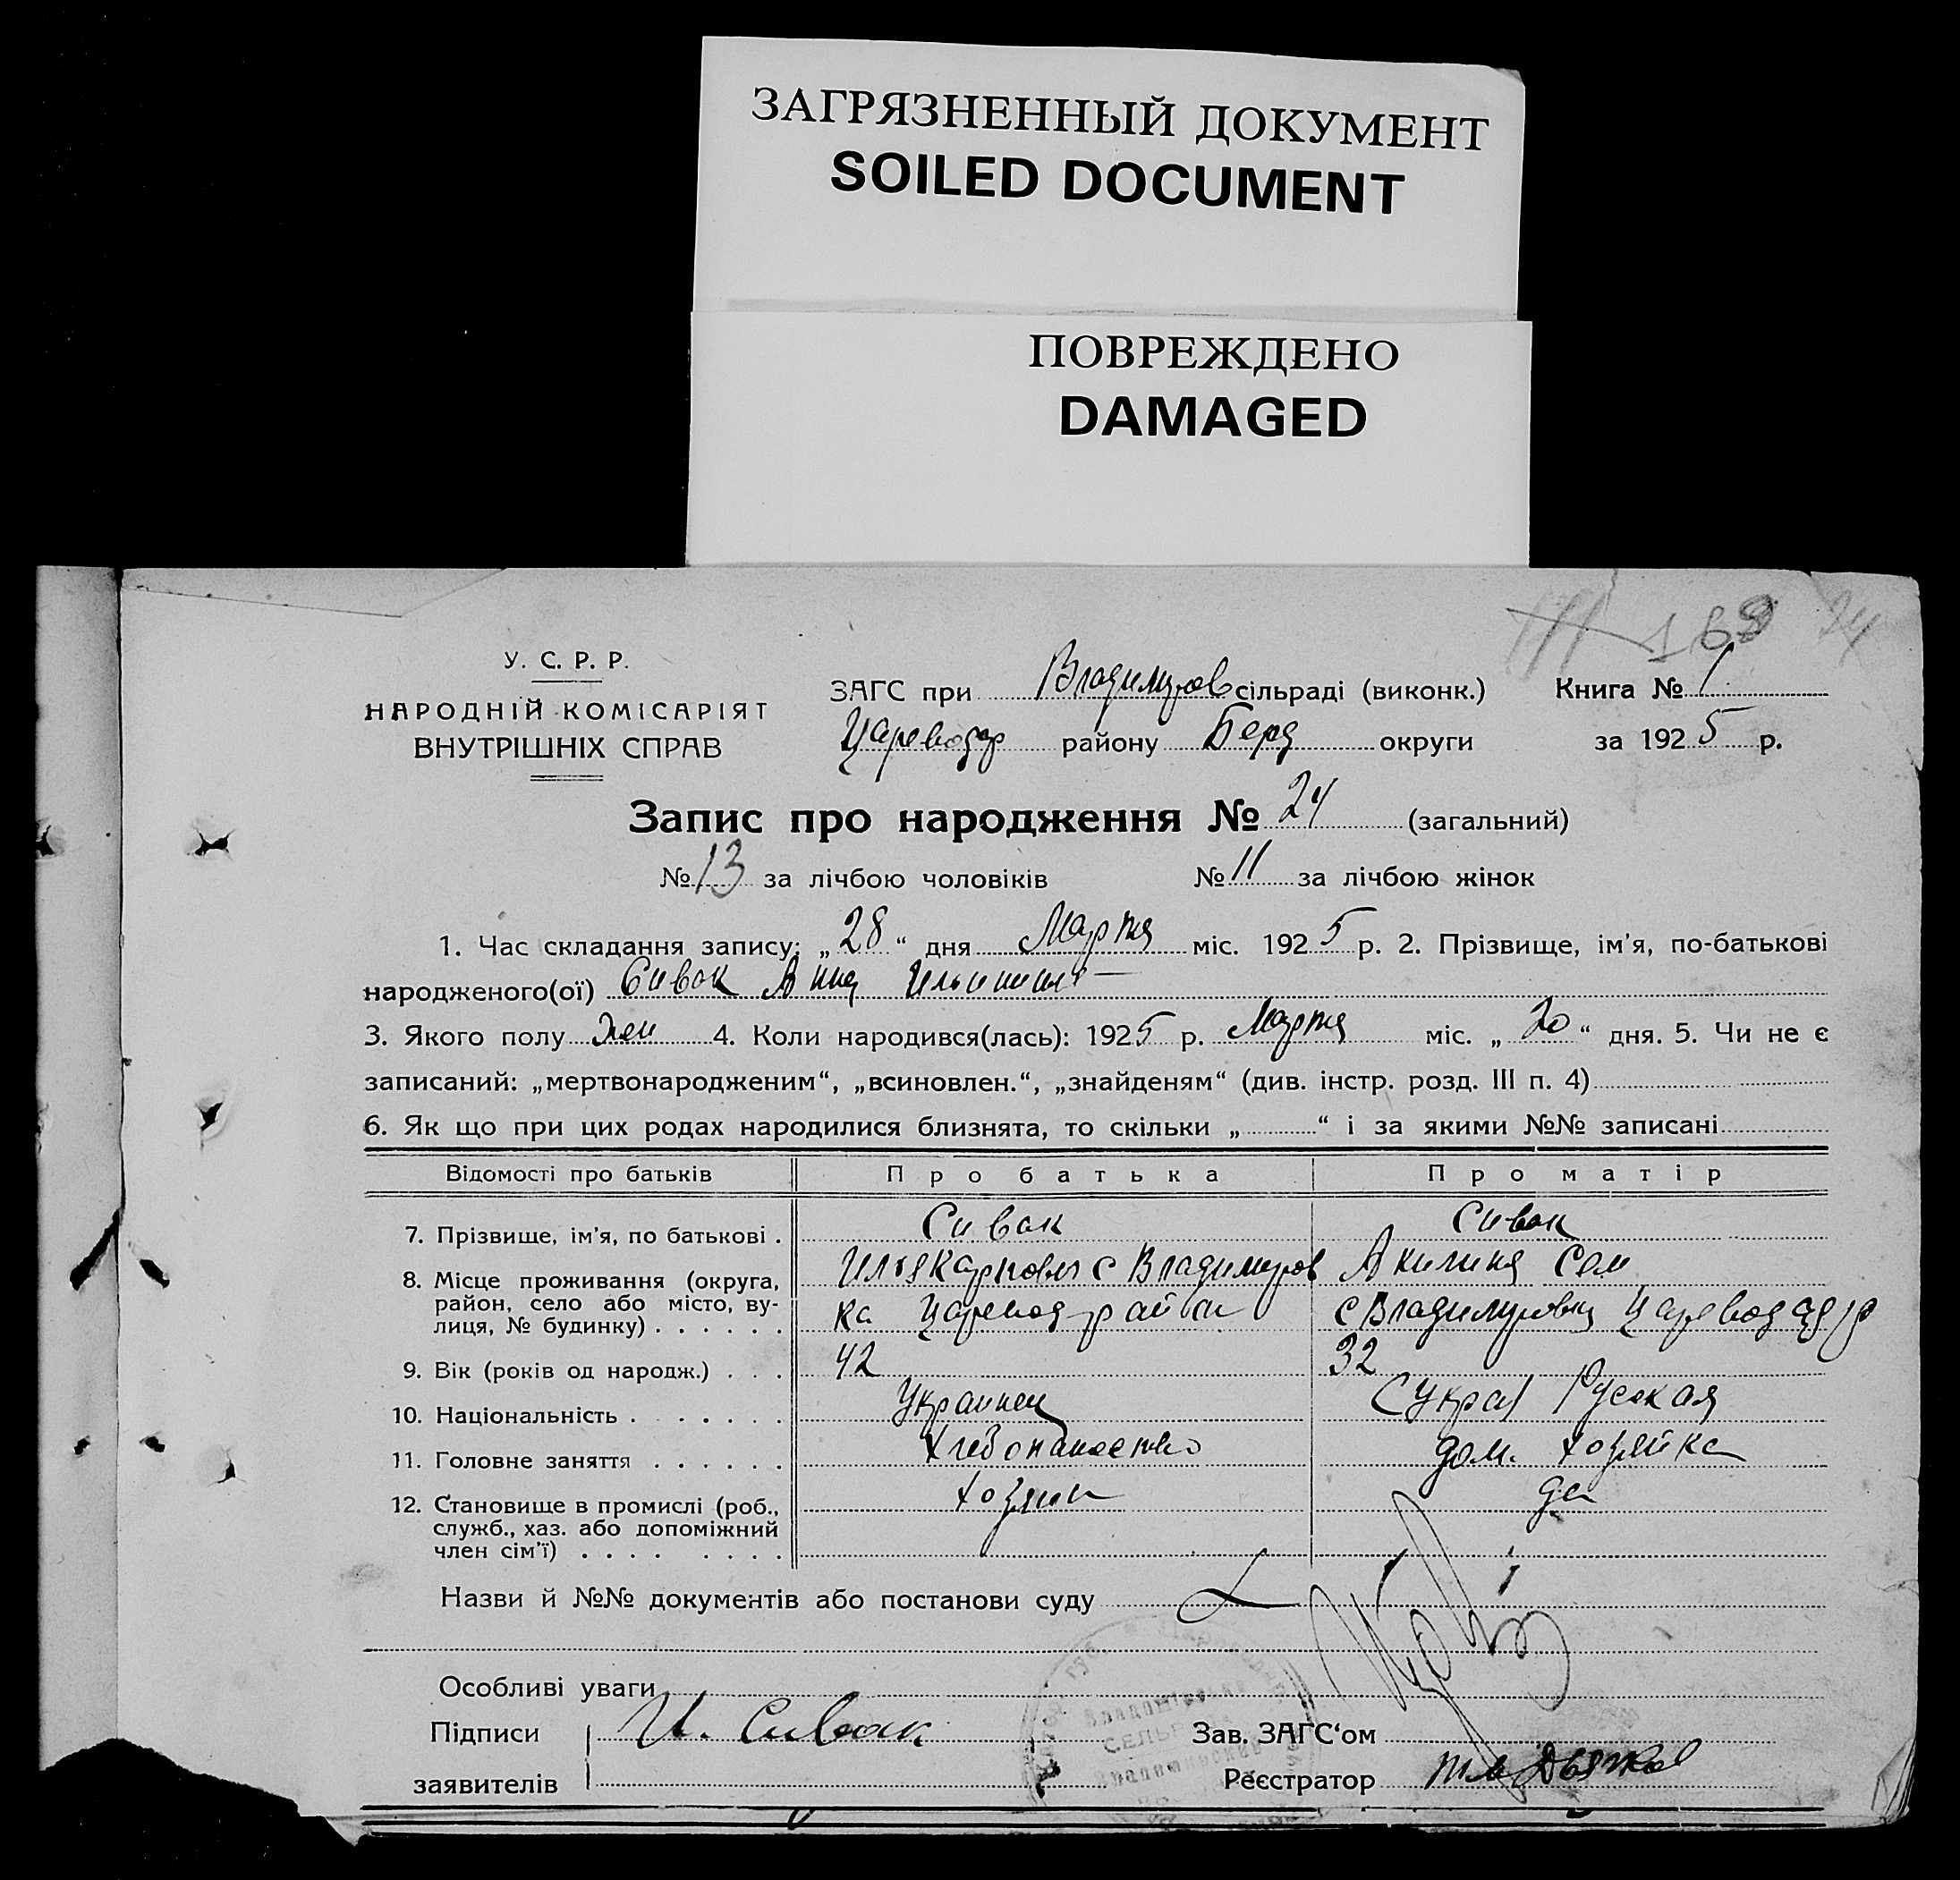 ЗАГРЯЗНЕННЫЙ ДОКУМЕНТ
SOILED DOCUMENT
ПОВРЕЖДЕНО
DAMAGED
168 24
У. С. Р. Р.
НАРОДНІЙ КОМІСАРІЯТ
ВНУТРІШНІХ СПРАВ
ЗАГС при Владимуров сільраді (виконк.) Книга № 1
Цареводар району Берд округи за 1925 р.
Запис про народження № 24 (загальний)
№ 13 за лічбою чоловіків № 11 за лічбою жінок
1. Час складання запису: „28“ дня Марта міс. 1925 р. 2. Прізвище, ім'я, по-батькові
народженого(ої) Сивак Анна
3. Якого полу жен 4. Коли народився(лась): 1925 р. Марта міс. „20“ дня. 5. Чи не є
записаний: „мертвонародженим“, „всиновлен.“, „знайденям“ (див. інстр. розд. III п. 4)
6. Як що при цих родах народилися близнята, то скільки „ “ і за якими №№ записані
Відомості про батьків Про батька Про матір
7. Прізвище, ім'я, по батькові . Сивак Сивак
8. Місце проживання (округа, район, село або місто, вулиця, № будинку) . . . . . . Илья Карпович с Владимуров Акилина Сем
ка с Владимуровка
9. Вік (років од народж.) . . . 42 32
10. Національність . . . . . . . Украинец (Укра) Русская
11. Головне заняття . . . . . . Хлебопашество дом. хозяйка
12. Становище в промислі (роб., служб., хаз. або допоміжний член сім'ї) . . . . . . . . хозяин да
Назви й №№ документів або постанови суду
Особливі уваги
Підписи И. Сивак Зав. ЗАГС'ом
заявителів Реєстратор
СЕЛЬ